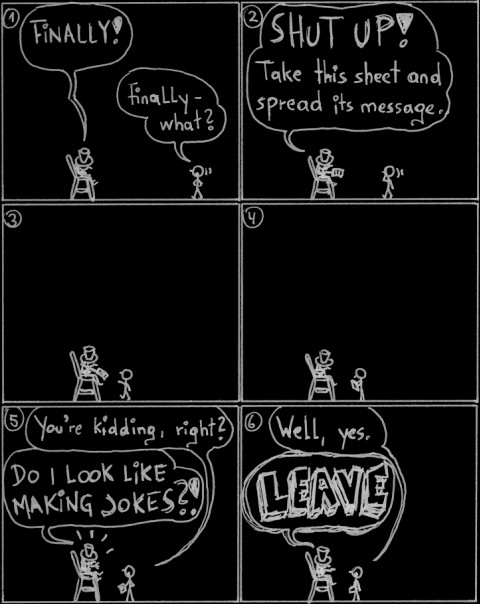 1
FINALLY!
Finally -
what?
2
SHUT UP!
Take this sheet and
spread its message.
3
4
5
You're kidding, right?
DO I LOOK LIKE
MAKING JOKES?!
6
Well, yes.
LEAVE